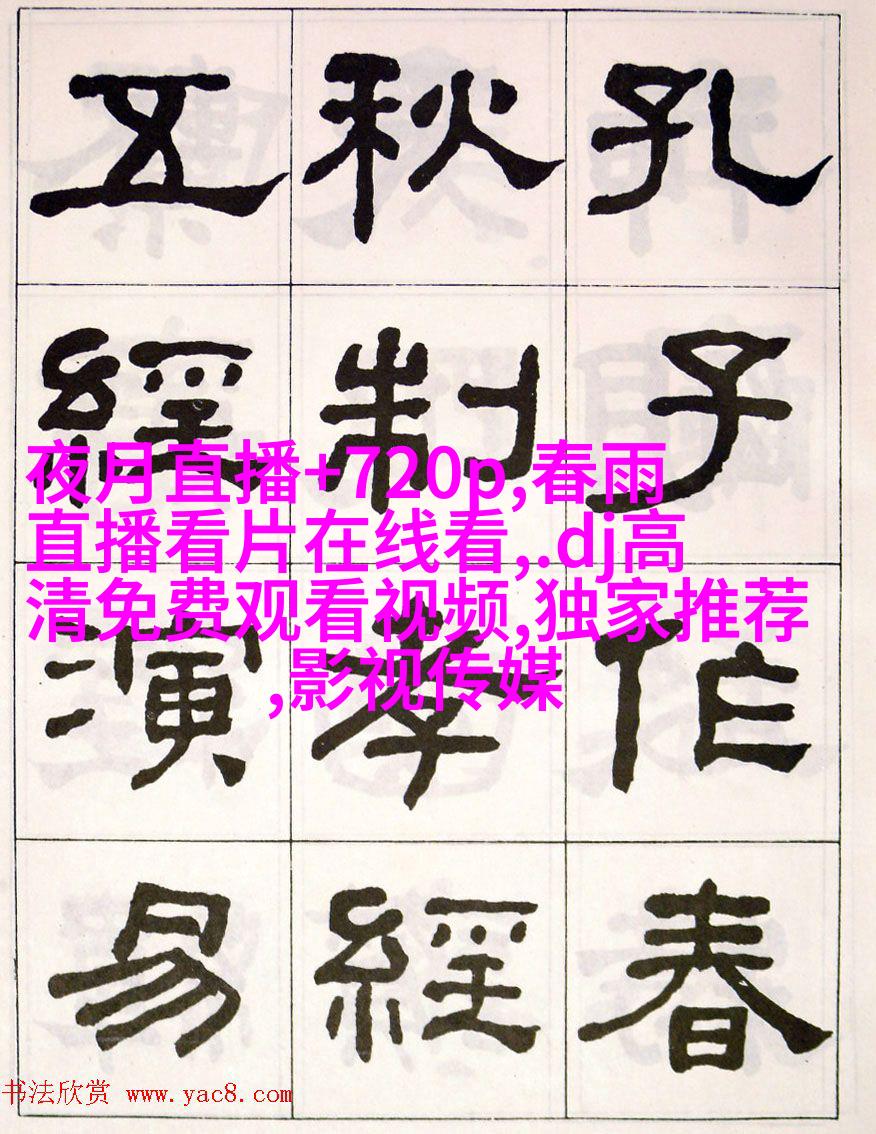 孔子作春
秋制孝經
五經演易
夜月直播+720p,春雨
直播看片在线看,.dj高
清免费观看视频,独家推荐
,影视传媒
书法欣赏 www.yac8.com